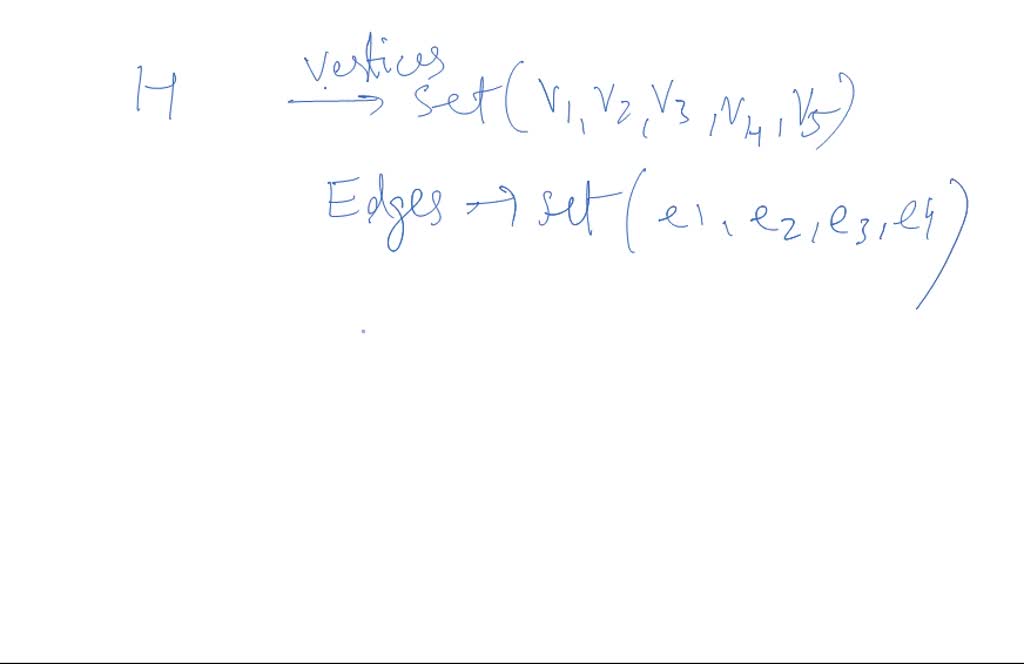 H vertices → set(v1, v2, v3, v4, v5)
Edges → set(e1, e2, e3, e4)